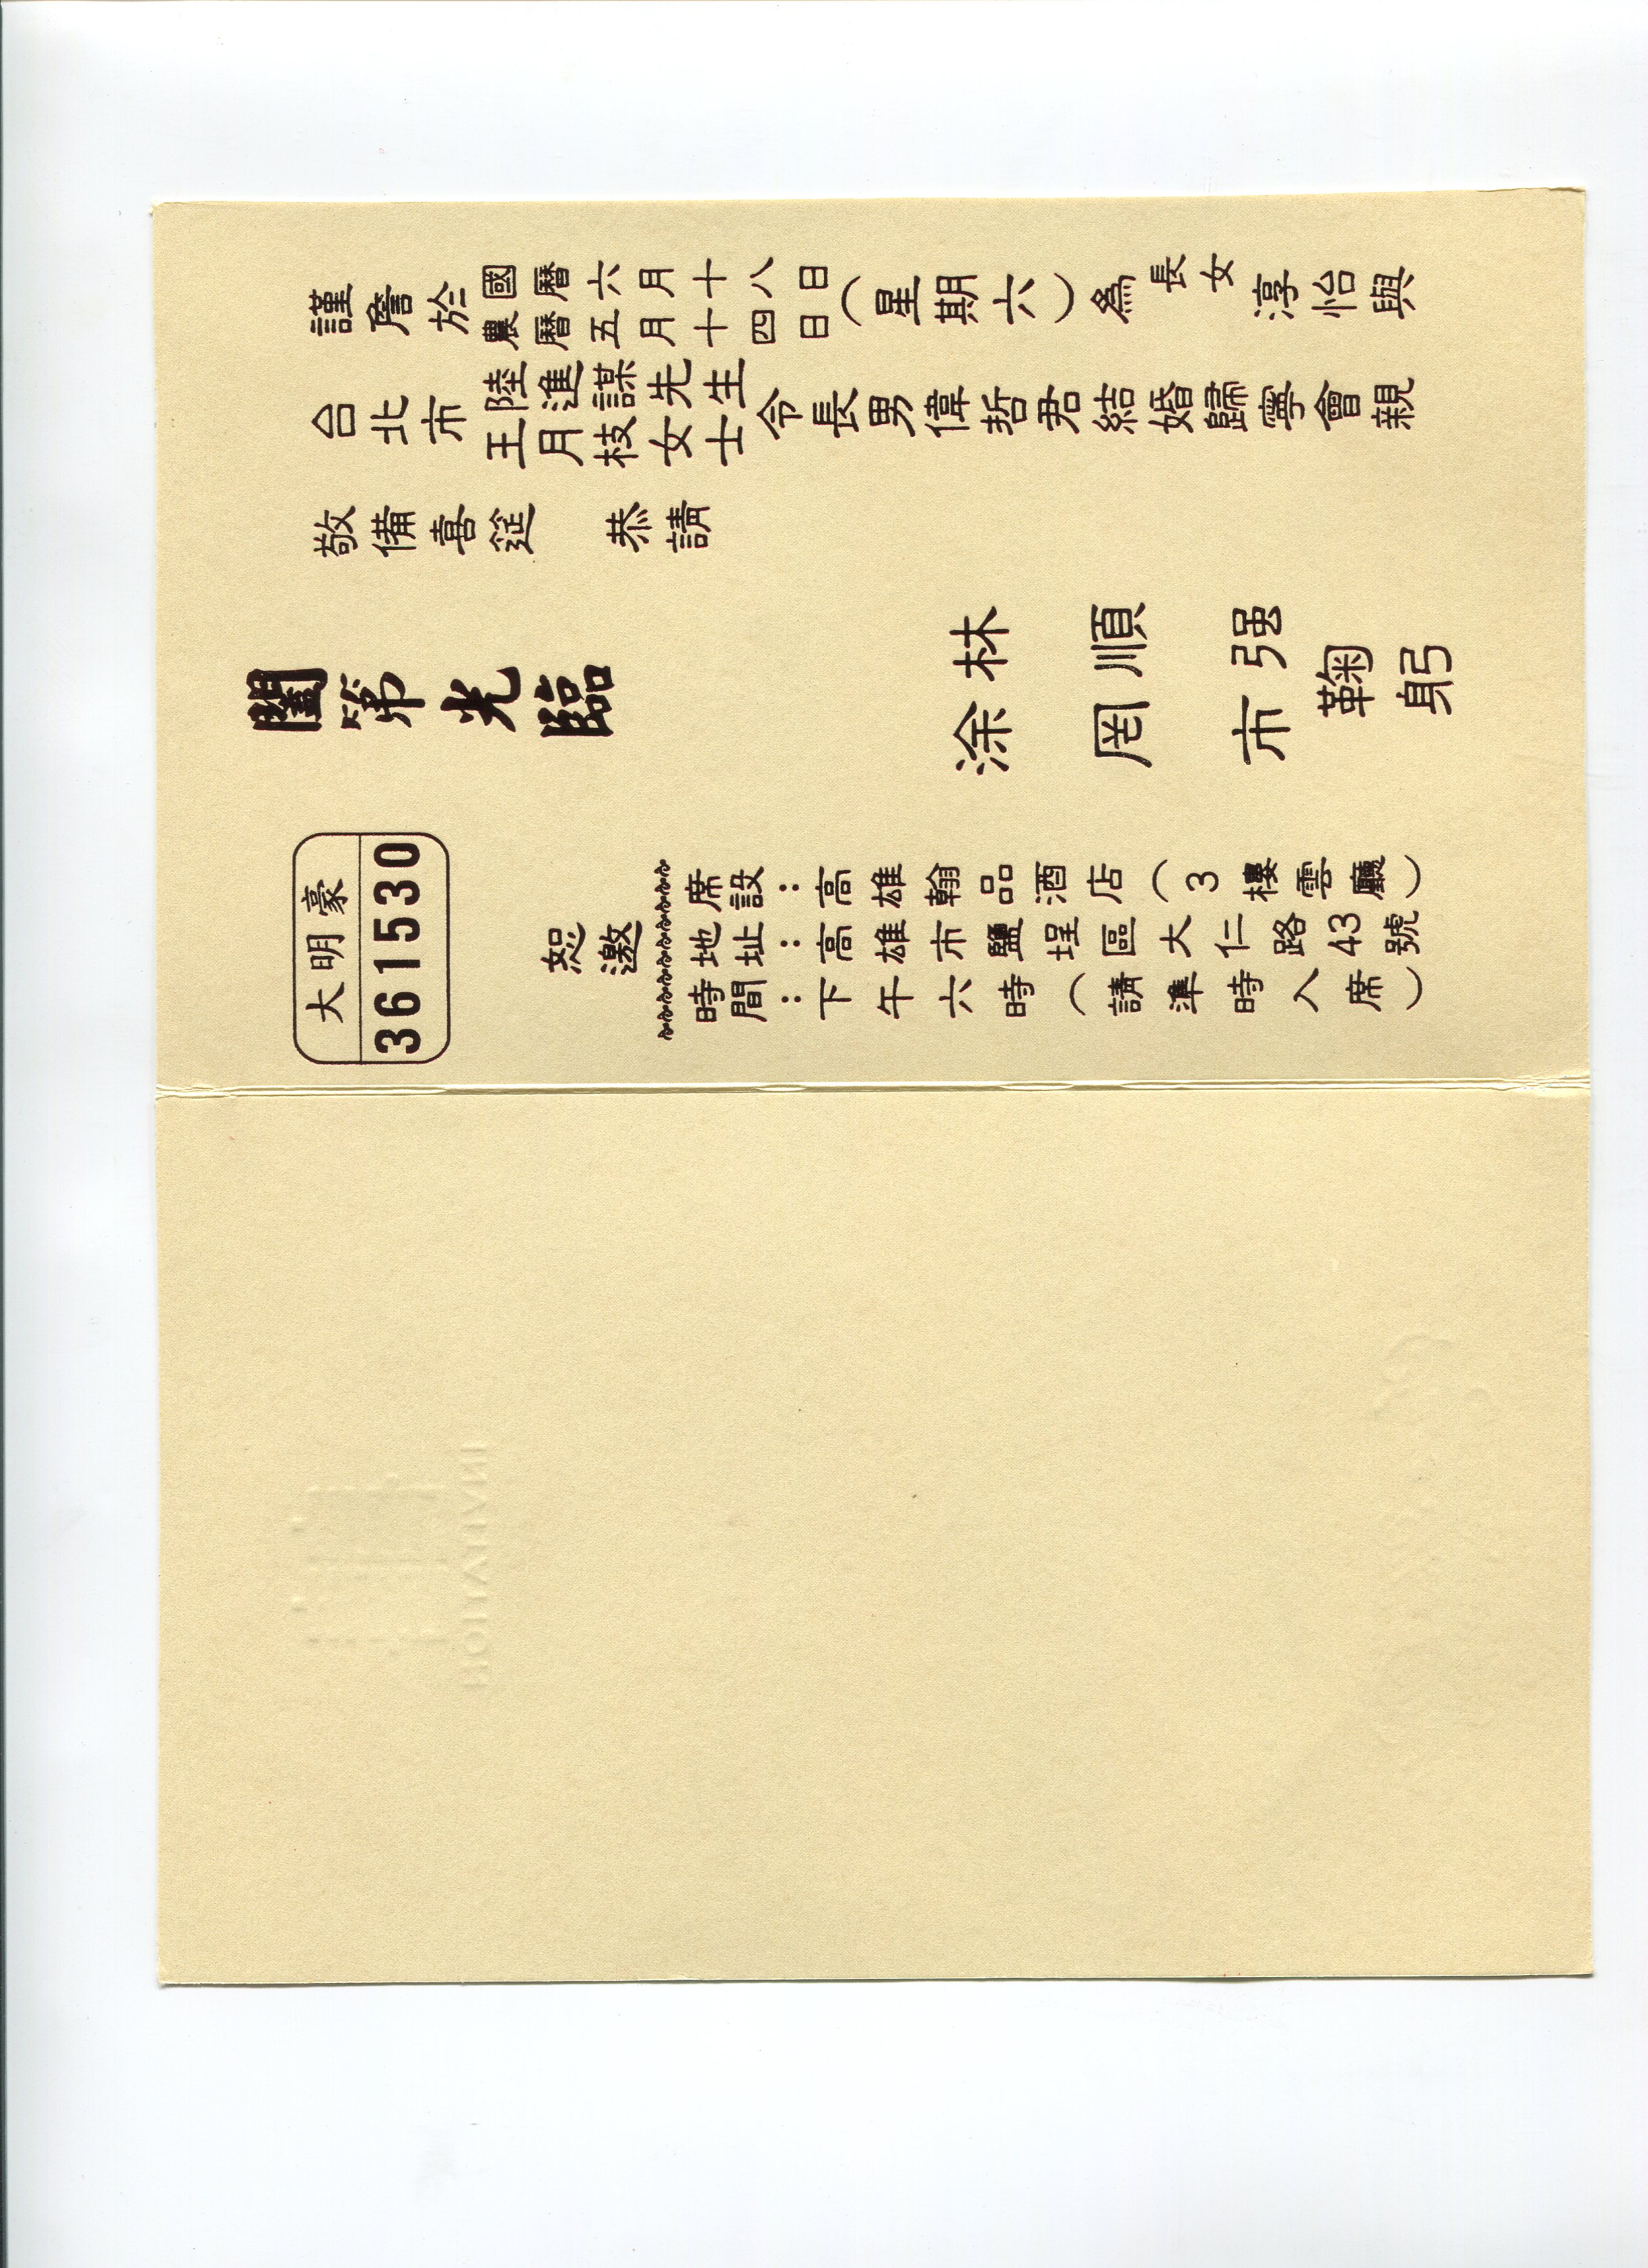 謹詹於國曆六月十八日
農曆五月十四日（星期六）爲長女淳怡與
台北市陸進謀先生
王月枝女士令長男偉哲君結婚歸寧會親
敬備喜筵　恭請
闔第光臨
林順强
涂罔市
鞠躬
恕邀
席設：高雄翰品酒店（3樓雲廳）
地址：高雄市鹽埕區大仁路43號
時間：下午六時（請準時入席）
大明豪
361530
INVITATION